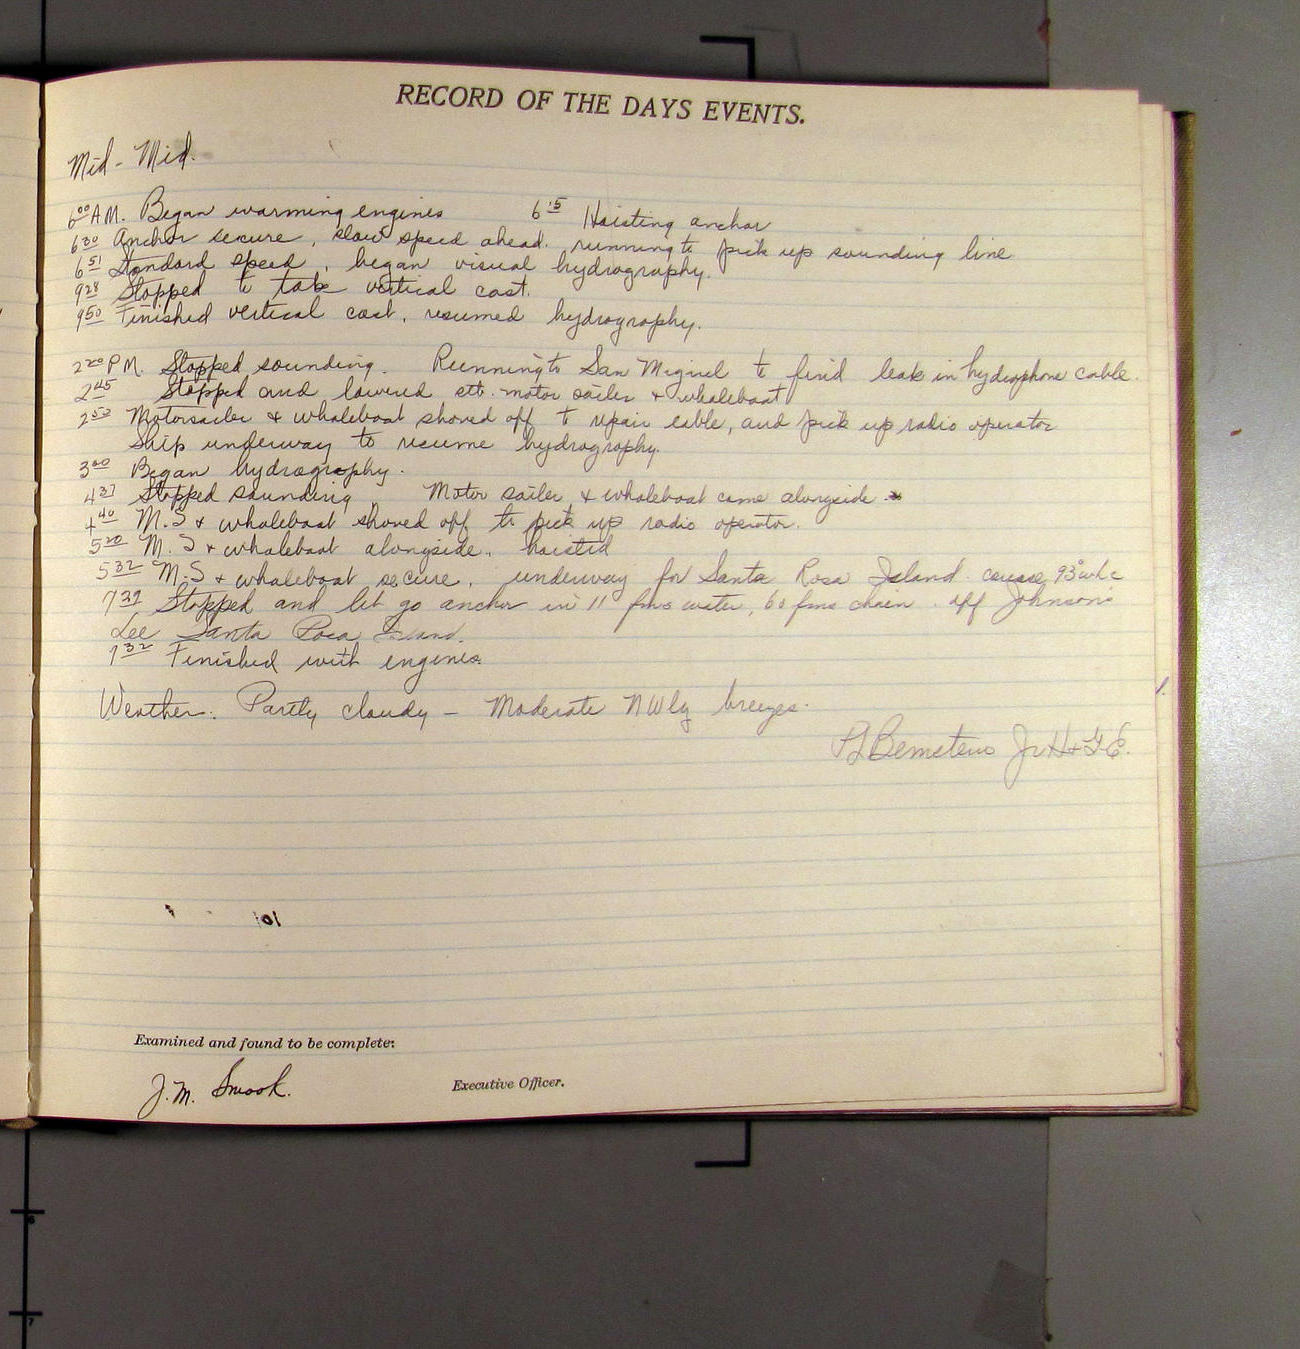 RECORD OF THE DAYS EVENTS.
Mid - Mid.
6 00 AM. Began warming engines 6 15 Hoisting anchor
6 30 Anchor secure, slow speed ahead. running to pick up sounding line
6 51 Standard speed, began visual hydrography.
9 28 Stopped to take vertical cast.
9 50 Finished vertical cast, resumed hydrography.
2 20 PM. Stopped sounding. Running to San Miguel to find leak in hydrophone cable.
2 45 Stopped and lowered motor sailer & whaleboat
2 50 Motorsailer & whaleboat shoved off to repair cable, and pick up radio operator
Ship underway to resume hydrography.
3 00 Began hydrography.
4 37 Stopped sounding Motor sailer & whaleboat came alongside
4 40 M.S & whaleboat shoved off to pick up radio operator.
5 20 M.S & whaleboat alongside, hoisted
5 32 M.S & whaleboat secure, underway for Santa Rosa Island course 93°
7 32 Stopped and let go anchor in 11 fms water, 60 fms chain. off Johnsons
Lee Santa Rosa Island.
7 32 Finished with engines.
Weather: Partly cloudy - Moderate NWly breezes.
Bernstein Jr H & G E.
Examined and found to be complete:
J.M. Smook. Executive Officer.
6
7